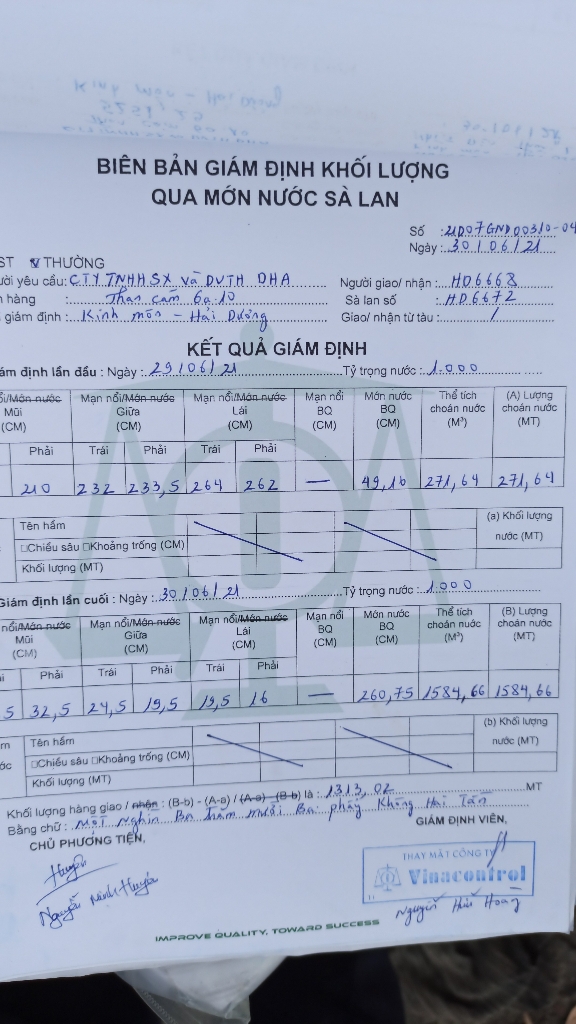 BIÊN BẢN GIÁM ĐỊNH KHỐI LƯỢNG
QUA MỚN NƯỚC SÀ LAN
Số : 21D07GND00310-04
Ngày : 30/06/21
ST THƯỜNG
ười yêu cầu: CTY TNHH SX và DVTH DHA Người giao/ nhận : HD6668
n hàng : Than cám 6a.10 Sà lan số : HD6672
giám định : Kinh môn - Hải Dương Giao/ nhận từ tàu : /
KẾT QUẢ GIÁM ĐỊNH
ám định lần đầu : Ngày : 29/06/21 Tỷ trọng nước : 1.000
ổi/Món nước Mũi (CM) Mạn nổi/Món nước Giữa (CM) Mạn nổi/Món nước Lái (CM) Mạn nổi BQ (CM) Món nước BQ (CM) Thể tích choán nước (M³) (A) Lượng choán nước (MT)
Phải Trái Phải Trái Phải
210 232 233,5 264 262 — 49,16 271,64 271,64
Tên hầm (a) Khối lượng nước (MT)
□Chiều sâu □Khoảng trống (CM)
Khối lượng (MT)
Giám định lần cuối : Ngày : 30/06/21 Tỷ trọng nước : 1.000
nổi/Món nước Mũi (CM) Mạn nổi/Món nước Giữa (CM) Mạn nổi/Món nước Lái (CM) Mạn nổi BQ (CM) Món nước BQ (CM) Thể tích choán nước (M³) (B) Lượng choán nước (MT)
ái Phải Trái Phải Trái Phải
5 32,5 24,5 19,5 19,5 16 — 260,75 1584,66 1584,66
m Tên hầm (b) Khối lượng nước (MT)
ớc □Chiều sâu □Khoảng trống (CM)
Khối lượng (MT)
Khối lượng hàng giao / nhận : (B-b) - (A-a) / (A-a) - (B-b) là : 1313,02 MT
Bằng chữ : Một nghìn Ba trăm mười Ba phẩy Không Hai Tấn
CHỦ PHƯƠNG TIỆN, GIÁM ĐỊNH VIÊN,
Huyên
Nguyễn Minh Huyên
THAY MẶT CÔNG TY
Vinacontrol
Nguyễn Hữu Hoàng
IMPROVE QUALITY, TOWARD SUCCESS